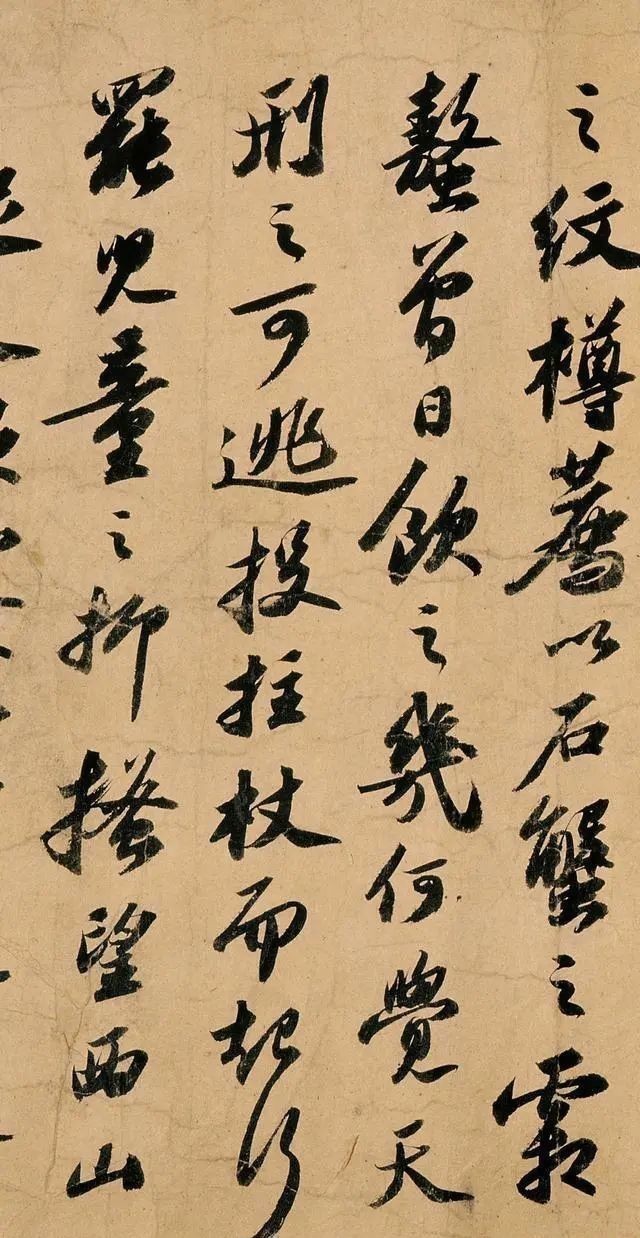 之纹樽薦以石蟹之霜
螯曾日飲之幾何覺天
刑之可逃投拄杖而起行
罷兒童之抑搔望西山